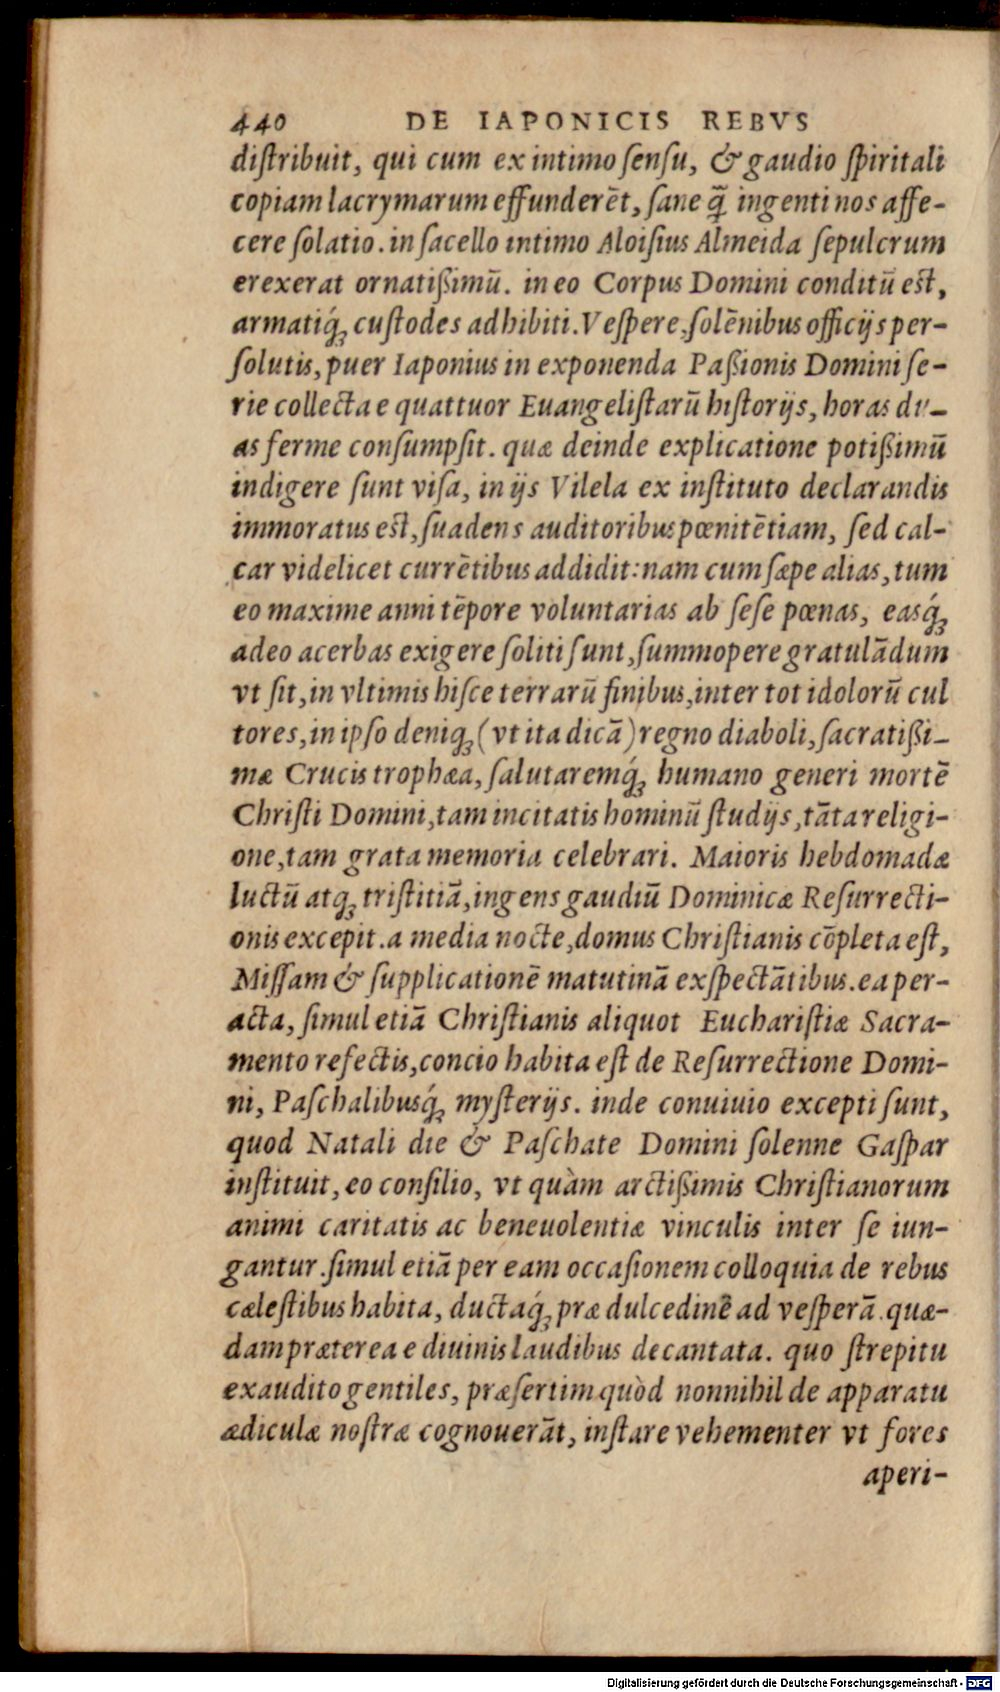 440 DE IAPONICIS REBVS
diſtribuit, qui cum ex intimo ſenſu, & gaudio ſpiritali
copiam lacrymarum effunderēt, ſane q̃ ingenti nos affe-
cere ſolatio. in ſacello intimo Aloiſius Almeida ſepulcrum
erexerat ornatißimū. in eo Corpus Domini conditū est,
armatiq́ꝫ cuſtodes adhibiti. Veſpere, ſolēnibus officijs per-
ſolutis, puer Iaponius in exponenda Paßionis Domini ſe-
rie collecta e quattuor Euangeliſtarū hiſtorijs, horas du-
as ferme conſumpſit. quæ deinde explicatione potißimū
indigere ſunt viſa, in ijs Vilela ex inſtituto declarandis
immoratus est, ſuadens auditoribus pœnitētiam, ſed cal-
car videlicet currētibus addidit: nam cum ſæpe alias, tum
eo maxime anni tēpore voluntarias ab ſeſe pœnas, easq́ꝫ
adeo acerbas exigere ſoliti ſunt, ſummopere gratulādum
vt ſit, in vltimis hiſce terrarū finibus, inter tot idolorū cul
tores, in ipſo deniqꝫ (vt ita dicā) regno diaboli, ſacratißi-
mæ Crucis trophæa, ſalutaremq́ꝫ humano generi mortē
Chriſti Domini, tam incitatis hominū ſtudijs, tāta religi-
one, tam grata memoria celebrari. Maioris hebdomadæ
luctū atqꝫ triſtitiā, ingens gaudiū Dominicæ Reſurrecti-
onis excepit. a media nocte, domus Chriſtianis cōpleta eſt,
Miſſam & ſupplicationē matutinā exſpectātibus. ea per-
acta, ſimul etiā Chriſtianis aliquot Euchariſtiæ Sacra-
mento refectis, concio habita eſt de Reſurrectione Domi-
ni, Paſchalibusq́ꝫ myſterijs. inde conuiuio excepti ſunt,
quod Natali die & Paſchate Domini ſolenne Gaſpar
inſtituit, eo conſilio, vt quàm arctißimis Chriſtianorum
animi caritatis ac beneuolentiæ vinculis inter ſe iun-
gantur. ſimul etiā per eam occaſionem colloquia de rebus
cæleſtibus habita, ductaq́ꝫ præ dulcedinē ad veſperā. quæ-
dam præterea e diuinis laudibus decantata. quo ſtrepitu
exaudito gentiles, præſertim quòd nonnihil de apparatu
ædiculæ noſtræ cognouerāt, inſtare vehementer vt fores
aperi-
Digitalisierung gefördert durch die Deutsche Forschungsgemeinschaft - DFG